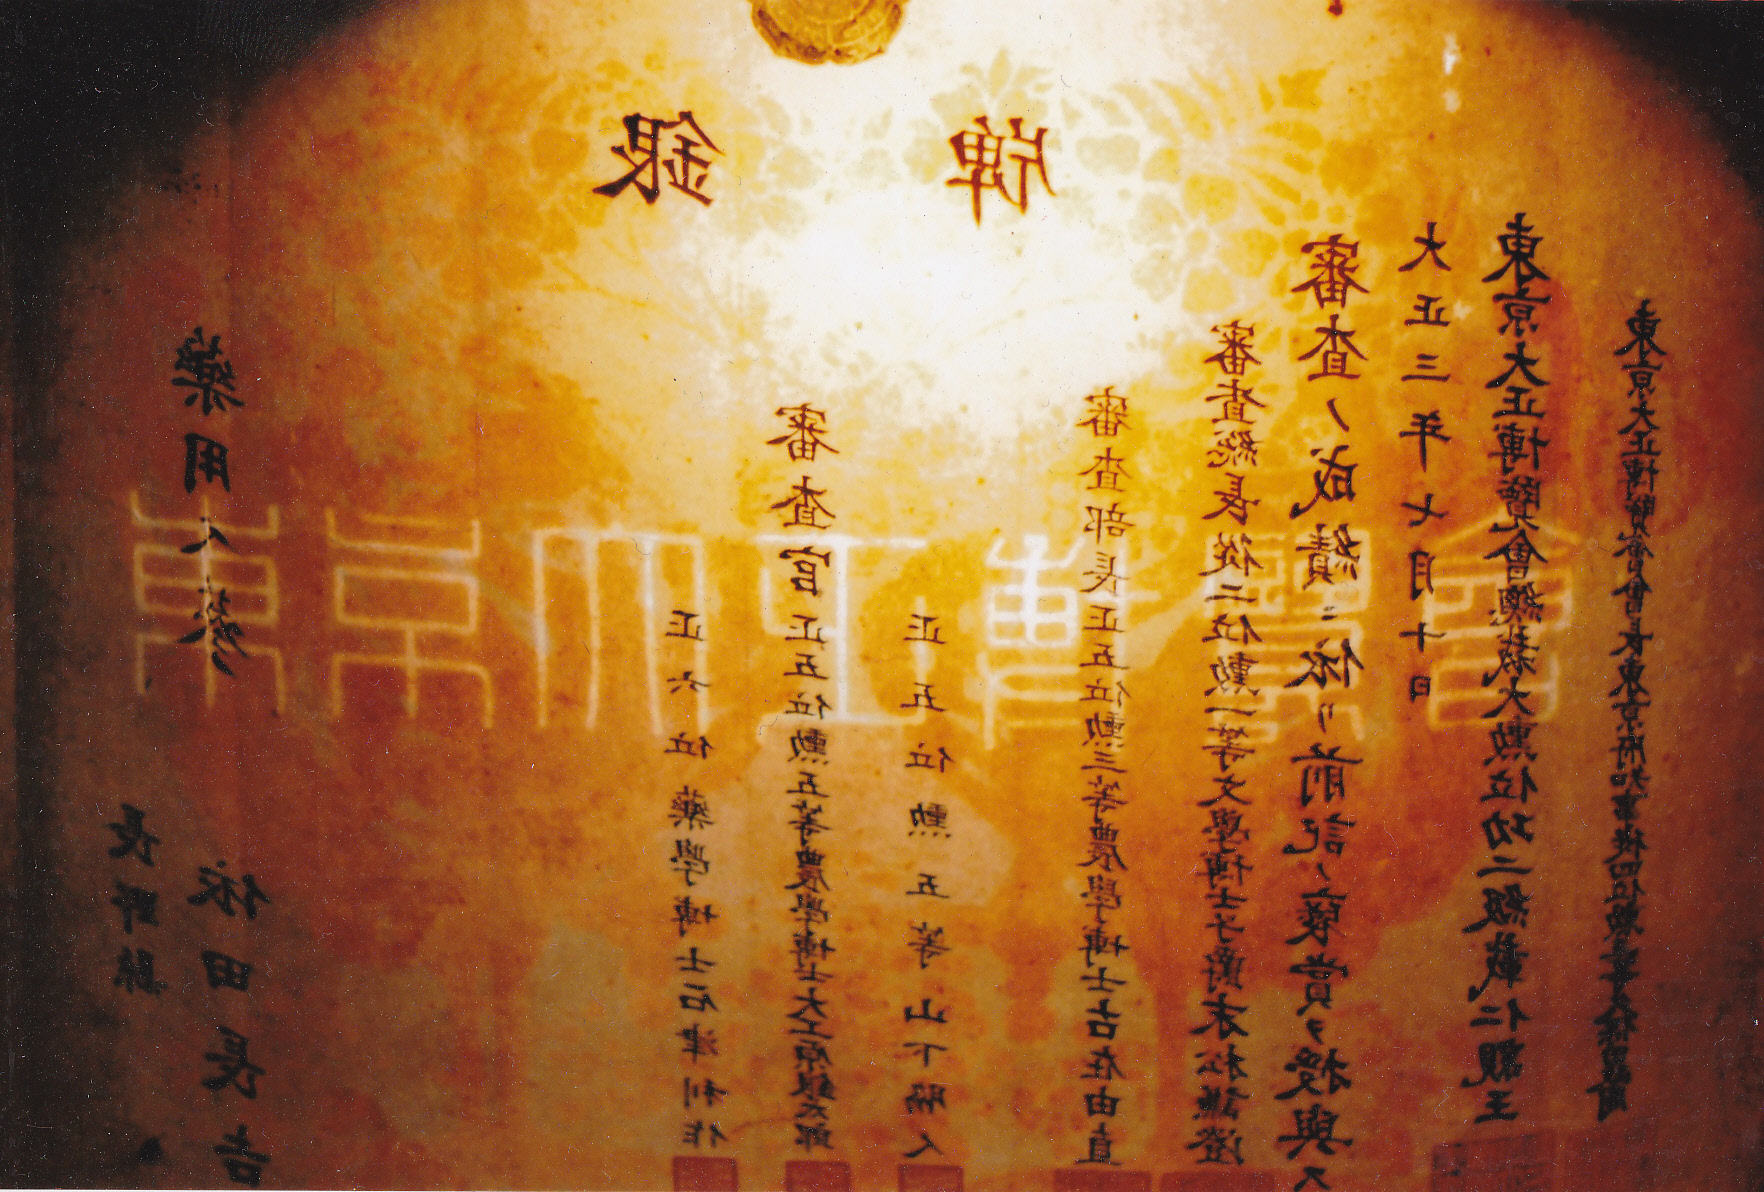 銀牌
東京大正博覽會
長野縣
藥用人蔘
依田長吉
正六位藥學博士石津利作
審査官正五位勳五等農學博士大工原銀太郎
正五位勳五等山下脇人
審査部長正五位勳三等農學博士古在由直
審査總長從二位勳一等文學博士子爵末松謙澄
審査ノ成績ニ依リ前記ノ褒賞ヲ授與ス
大正三年七月十日
東京大正博覽會總裁大勳位功二級載仁親王
東京大正博覽會會長東京府知事從四位勳三等